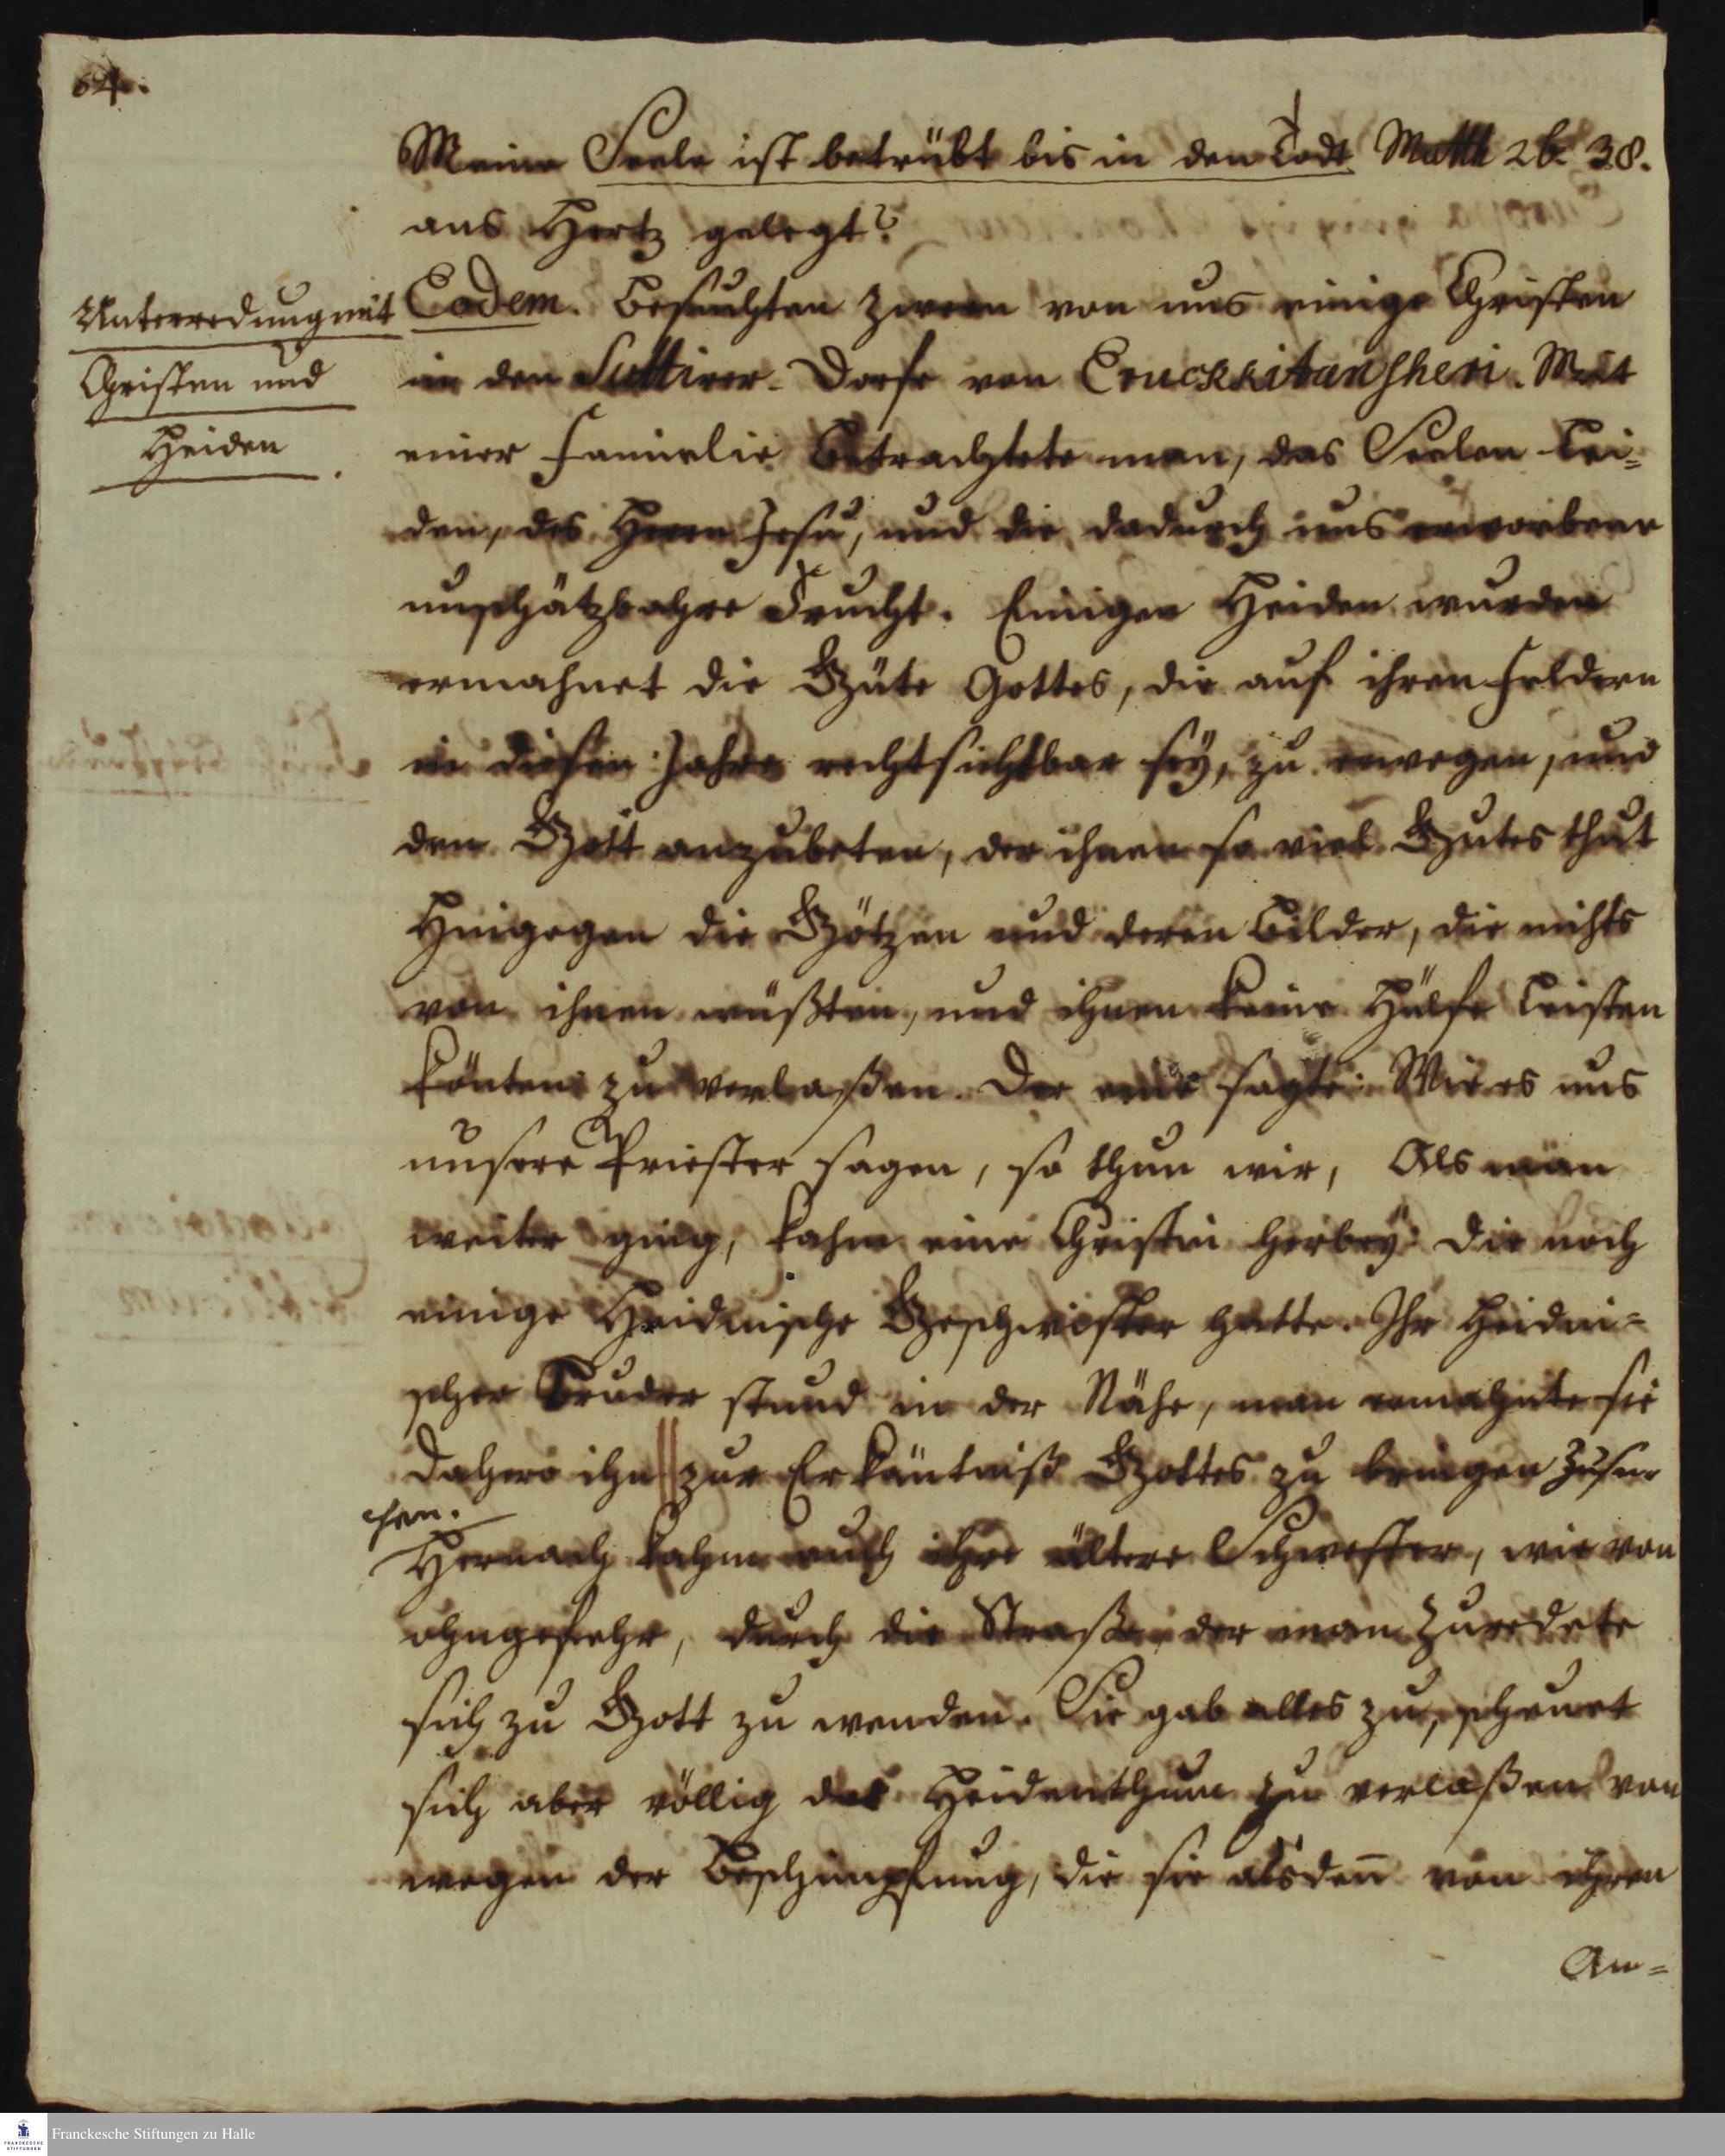 64.
Meine Seele ist betrübt bis in den Todt Matth 26. 38.
ans Hertz gelegt.
Unterredung mit
Christen und
Heiden.
Eodem. Besuchten zween von uns einige Christen
in den Suttirer-Dorfe von Eruckkitansheri. Mit
einer Familie betrachtete man, das Seelen Lei=
den, des Herrn Jesu, und die dadurch uns erworbene
unschätzbahre Frucht. Einigen Heiden wurden
ermahnet die Güte Gottes, die auf ihren Feldern
in diesen Jahre recht sichtbar sey, zu erwegen, und
den Gott anzubeten, der ihnen so viel Gutes thut
Hingegen die Götzen und deren Bilder, die nichts
von ihnen wüßten, und ihnen keine Hülfe leisten
könten zu verlaßen. Der eine sagte: Wie es uns
unsere Priester sagen, so thun wir, Als man
weiter ging, kahm eine Christin herbey: die noch
einige Heidnische Geschwister hatte. Ihr Heidni=
scher Bruder stund in der Nähe, man ermahnte sie
dahero ihn zur Erkäntniß Gottes zu bringen zu su=
chen.
Hernach kahm auch ihre ältere Schwester, wie von
ohngefehr, durch die Straße, der man zuredete
sich zu Gott zu wenden. Sie gab alles zu, scheuet
sich aber völlig das Heidenthum zu verlaßen von
wegen der Beschimpfung, die sie alsdeñ von ihren
An=
Franckesche Stiftungen zu Halle
FRANCKESCHE
STIFTUNGEN